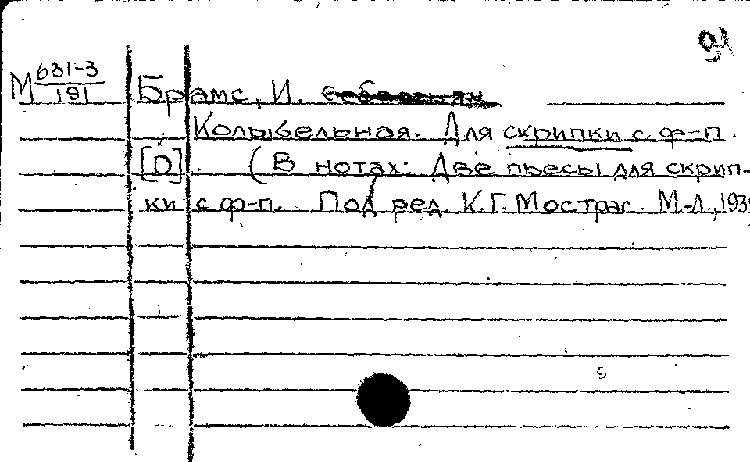 91
М 631-3/181 Брамс, И.
Колыбельная. Для скрипки с ф-п.
[D] (В нотах: Две пьесы для скрип-
ки с ф-п. Под ред. К.Г. Мострас. М-Л, 193